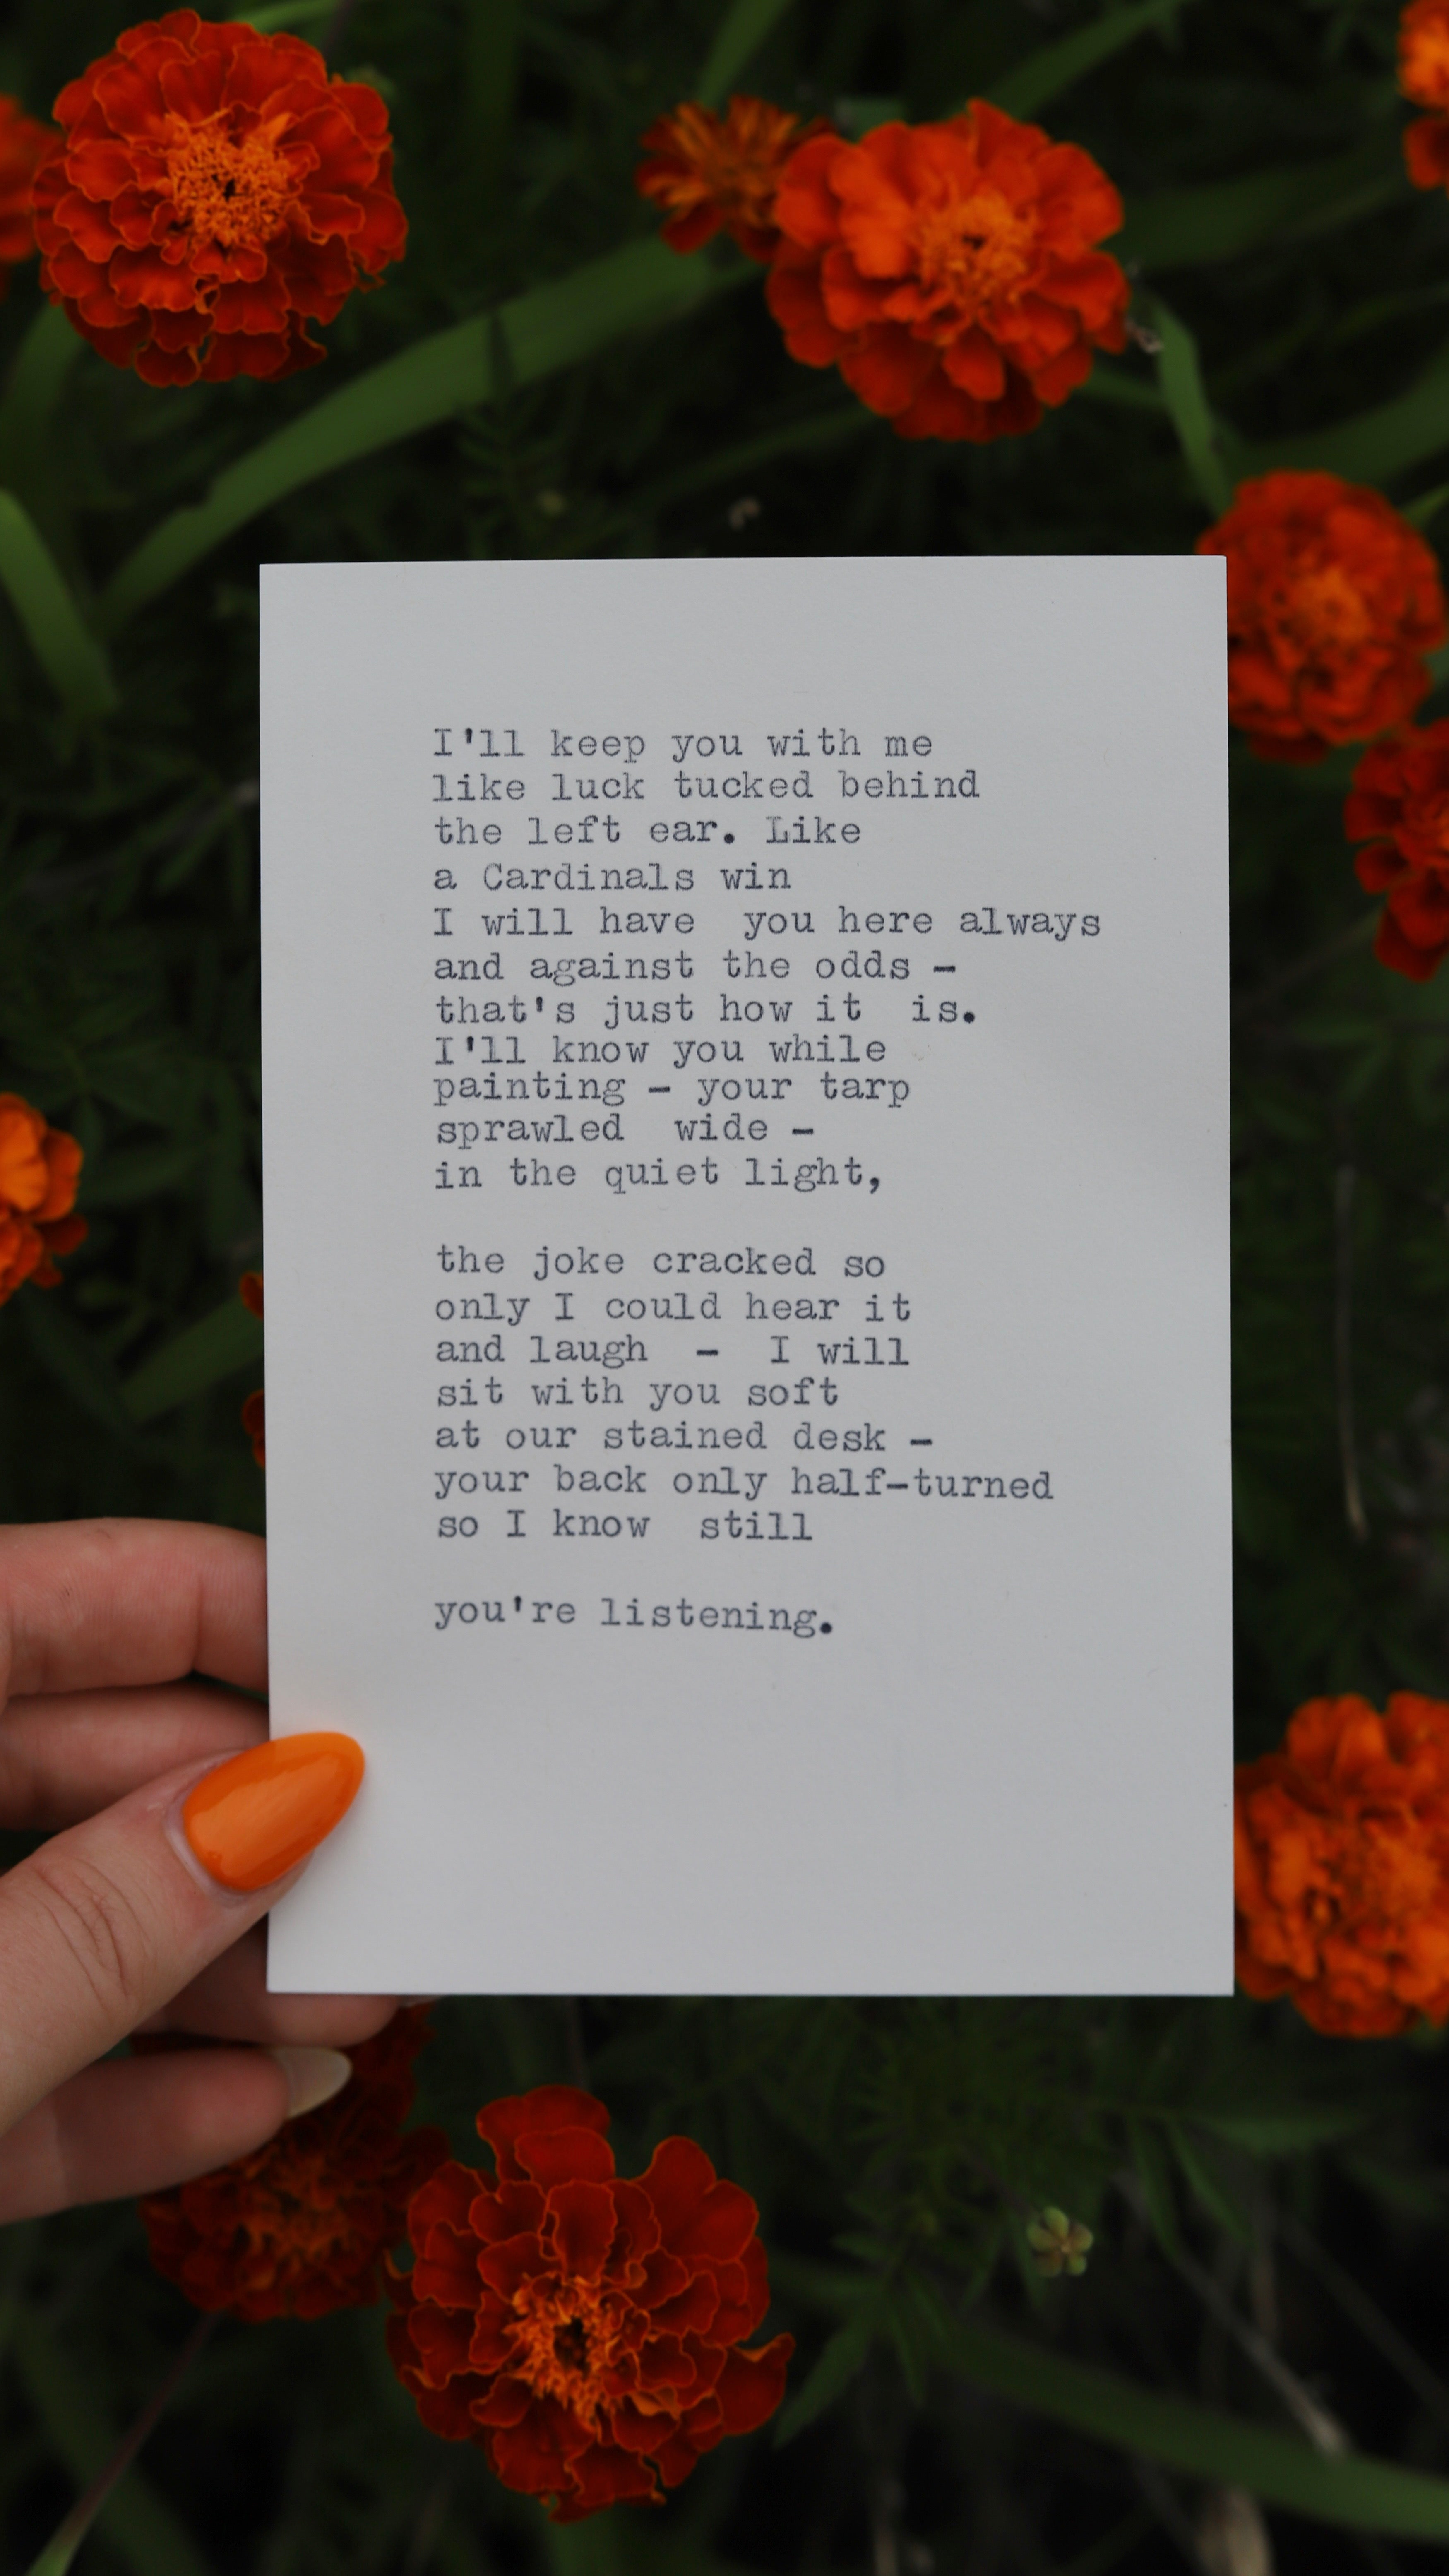 I'll keep you with me
like luck tucked behind
the left ear. Like
a Cardinals win
I will have  you here always
and against the odds -
that's just how it  is.
I'll know you while
painting - your tarp
sprawled  wide -
in the quiet light,

the joke cracked so
only I could hear it
and laugh  -  I will
sit with you soft
at our stained desk -
your back only half-turned
so I know  still

you're listening.